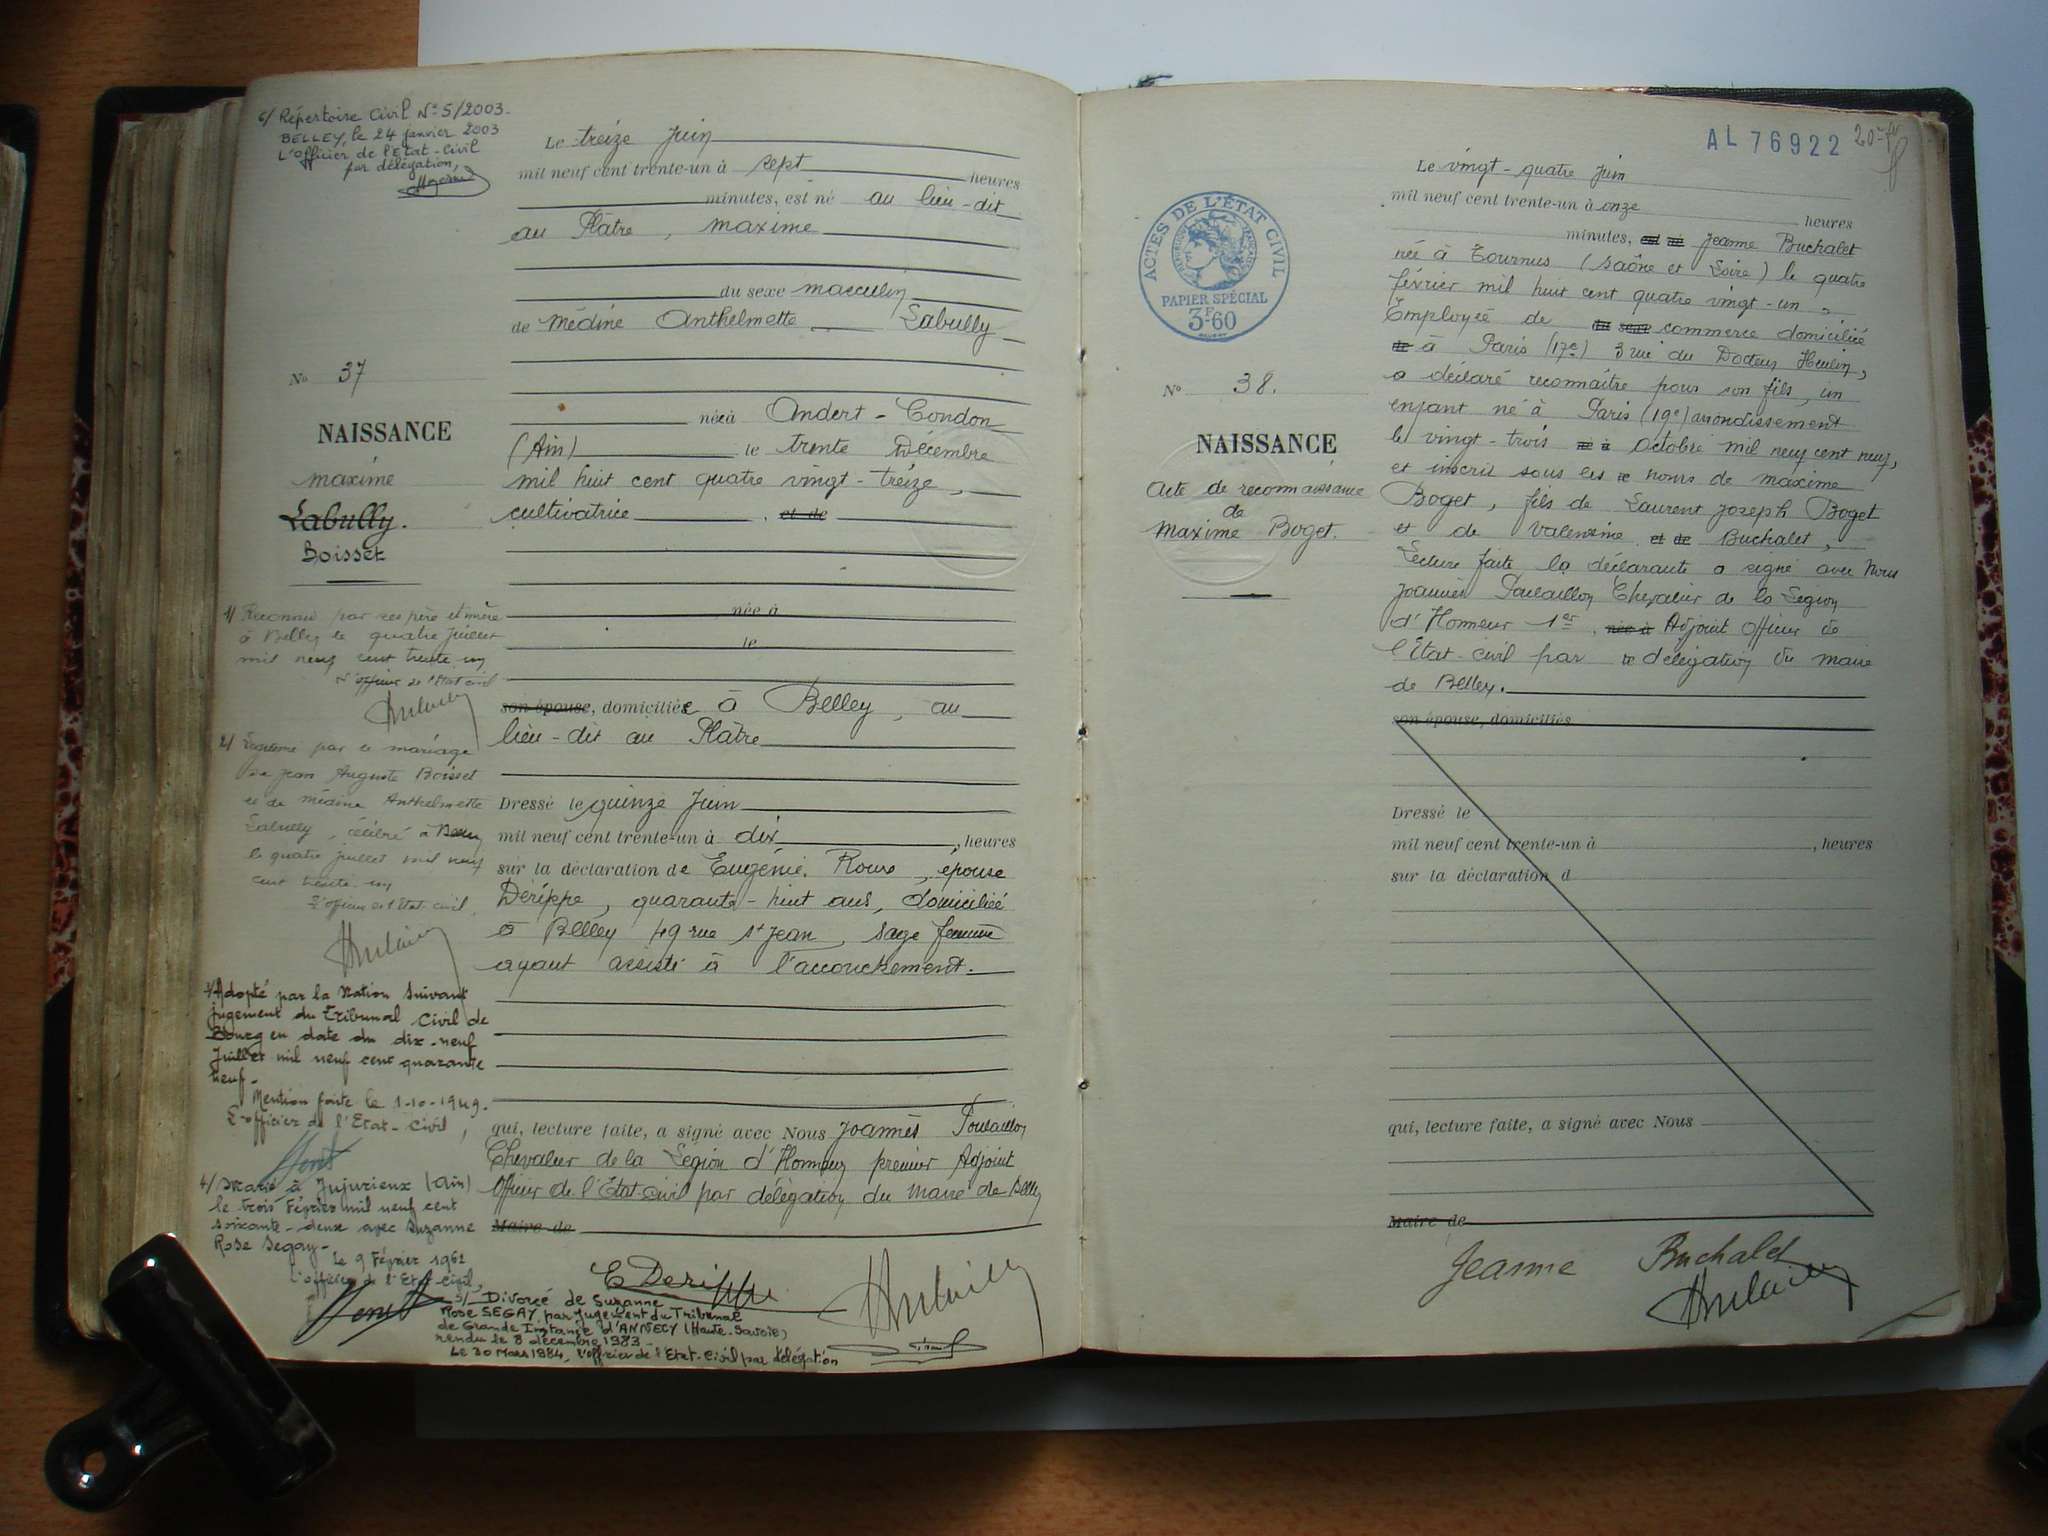 6/ Répertoire Civil N° 5/2003.
BELLEY, le 24 janvier 2003
L'officier de l'Etat-Civil
par délégation,
N° 37
NAISSANCE
maxime
Labully.
Boisset
1/ Reconnu par ses père et mère
à Belley le quatre Juillet
mil neuf cent trente un
L'officier de l'Etat civil
2/ Légitimé par le mariage
de Jean Auguste Boisset
et de Médine Anthelmette
Labully, célébré à Belley
le quatre juillet mil neuf
cent trente-un
L'officier de l'Etat-civil,
3/ Adopté par la Nation suivant
jugement du Tribunal Civil de
Bourg en date du dix-neuf
Juillet mil neuf cent quarante
neuf-
Mention faite le 1-10-1949.
L'officier de l'Etat-Civil,
4/ Marié à Jujurieux (Ain)
le trois Février mil neuf cent
soixante-deux avec Suzanne
Rose Segay-
Le 9 Février 1962
L'officier de l'Etat-Civil,
Le treize Juin
mil neuf cent trente-un à sept heures
minutes, est né au lieu-dit
au Plâtre, maxime
du sexe masculin
de Médine Anthelmette Labully
née à Andert-Condon
(Ain) le trente Décembre
mil huit cent quatre vingt-treize,
cultivatrice . et de
née à
le
son épouse, domiciliée à Belley, au
lieu-dit au Plâtre
Dressé le quinze Juin
mil neuf cent trente-un à dix, heures
sur la déclaration de Eugénie Roux, épouse
Derippe, quarante-huit ans, domiciliée
à Belley 49 rue St Jean, sage femme
ayant assisté à l'accouchement.
qui, lecture faite, a signé avec Nous Joannès Poulaillon
Chevalier de la Légion d'Honneur premier Adjoint
Officier de l'Etat-Civil par délégation du maire de Belley
Maire de
E Derippe
5/ Divorcé de Suzanne
Rose SEGAY par Jugement du Tribunal
de Grande Instance d'ANNECY (Haute-Savoie)
rendu le 8 décembre 1983-
Le 30 Mars 1984, l'officier de l'Etat-Civil par délégation
AL 76922
ACTES DE L'ÉTAT CIVIL
PAPIER SPÉCIAL
3F60
N° 38.
NAISSANCE
Acte de reconnaissance
de
Maxime Boget.
Le vingt-quatre Juin
mil neuf cent trente-un à onze heures
minutes, est né Jeanne Buchalet
née à Tournus (Saône et Loire) le quatre
février mil huit cent quatre vingt-un,
Employée de du sexe commerce domiciliée
de à Paris (17e) 3 rue du Docteur Heulin,
a déclaré reconnaître pour son fils, un
enfant né à Paris (19e) arrondissement
le vingt-trois né à Octobre mil neuf cent neuf,
et inscrit sous les le noms de maxime
Boget, fils de Laurent Joseph Boget
et de Valentine et de Buchalet,
Lecture faite la déclarante a signé avec Nous
Joannès Poulaillon Chevalier de la Légion
d'Honneur 1er née à Adjoint Officier de
l'Etat-civil par le délégation du maire
de Belley.
son épouse, domiciliés
Dressé le
mil neuf cent trente-un à , heures
sur la déclaration d
qui, lecture faite, a signé avec Nous
Maire de
Jeanne Buchalet